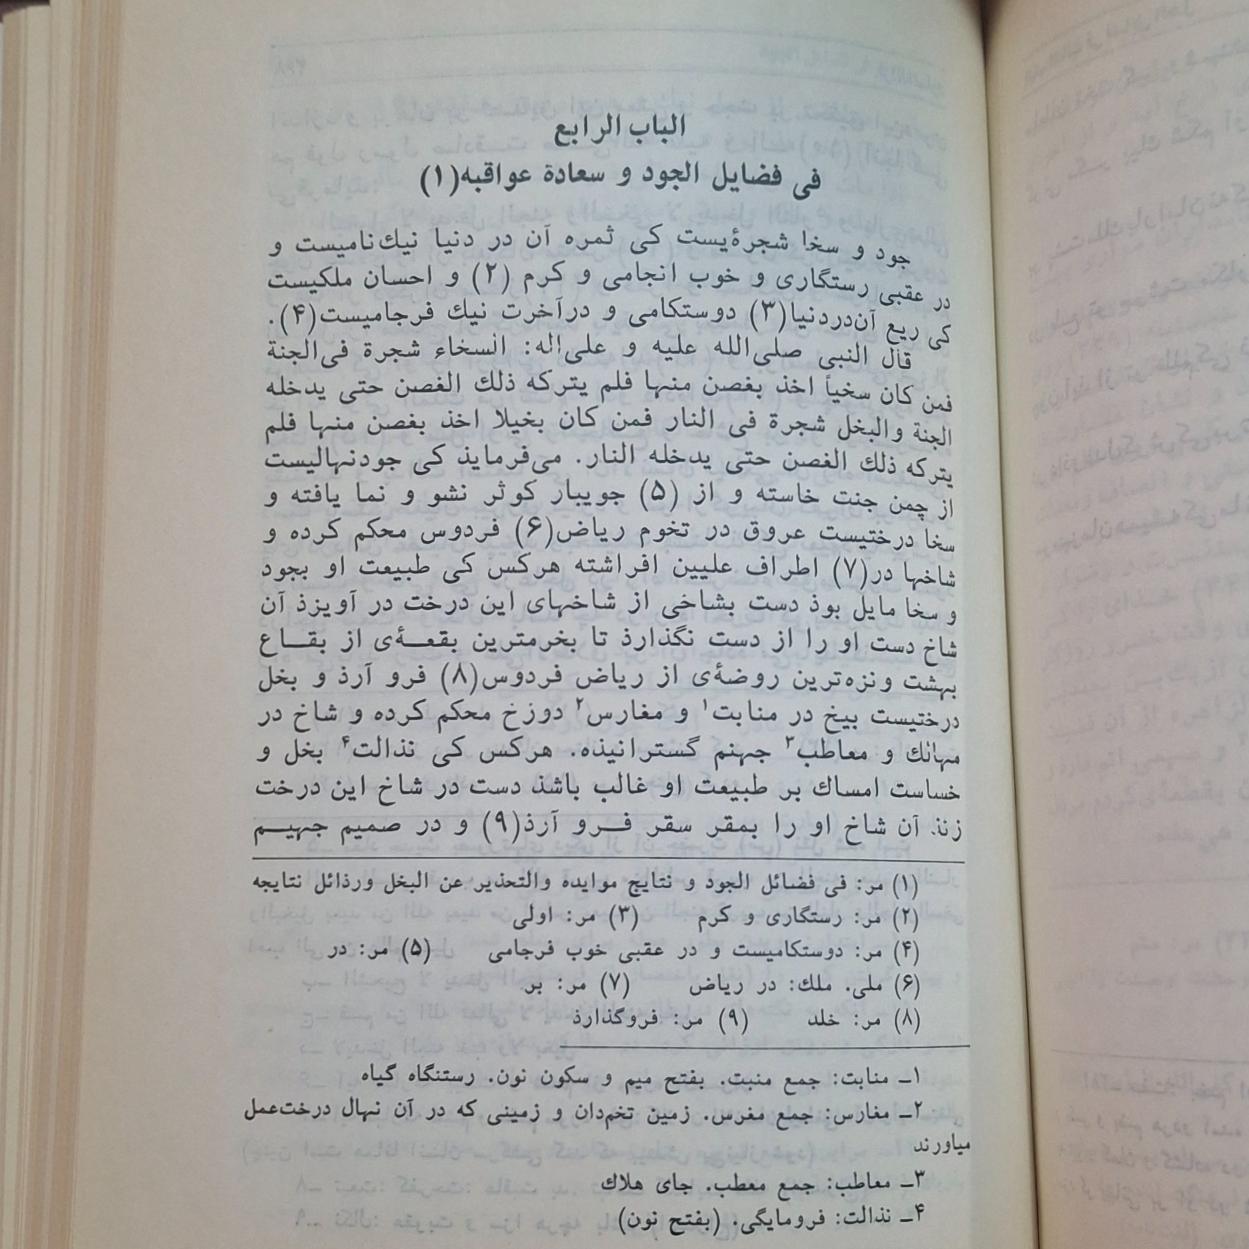 الباب الرابع
فی فضایل الجود و سعادة عواقبه(۱)
جود و سخا شجرۀیست کی ثمره آن در دنیا نیك‌نامیست و
در عقبی رستگاری و خوب انجامی و کرم (۲) و احسان ملکیست
کی ریع آن‌دردنیا(۳) دوستکامی و درآخرت نیك فرجامیست(۴).
قال النبی صلی‌الله علیه و علی‌اله: السخاء شجرة فی‌الجنة
فمن کان سخیاً اخذ بغصن منها فلم یترکه ذلك الغصن حتی یدخله
الجنة والبخل شجرة فی النار فمن کان بخیلا اخذ بغصن منها فلم
یترکه ذلك الغصن حتی یدخله النار. می‌فرمایذ کی جودنهالیست
از چمن جنت خاسته و از (۵) جویبار کوثر نشو و نما یافته و
سخا درختیست عروق در تخوم ریاض(۶) فردوس محکم کرده و
شاخها در(۷) اطراف علیین افراشته هرکس کی طبیعت او بجود
و سخا مایل بوذ دست بشاخی از شاخهای این درخت در آویزذ آن
شاخ دست او را از دست نگذارذ تا بخرمترین بقعه‌ی از بقاع
بهشت ونزه‌ترین روضۀی از ریاض فردوس(۸) فرو آرذ و بخل
درختیست بیخ در منابت۱ و مغارس۲ دوزخ محکم کرده و شاخ در
مهالك و معاطب۳ جهنم گسترانیذه. هرکس کی نذالت۴ بخل و
خساست امساك بر طبیعت او غالب باشذ دست در شاخ این درخت
زنذ. آن شاخ او را بمقر سقر فرو آرذ(۹) و در صمیم جهیم
(۱) مر: فی فضائل الجود و نتایج موایده والتحذیر عن البخل ورذائل نتایجه
(۲) مر: رستگاری و کرم (۳) مر: اولی
(۴) مر: دوستکامیست و در عقبی خوب فرجامی (۵) مر: در
(۶) ملی. ملك: در ریاض (۷) مر: بر
(۸) مر: خلد (۹) مر: فروگذارذ
۱ـ منابت: جمع منبت. بفتح میم و سکون نون. رستنگاه گیاه
۲ـ مغارس: جمع مغرس. زمین تخم‌دان و زمینی که در آن نهال درخت‌عمل
میاورند
۳ـ معاطب: جمع معطب. جای هلاك
۴ـ نذالت: فرومایگی. (بفتح نون)